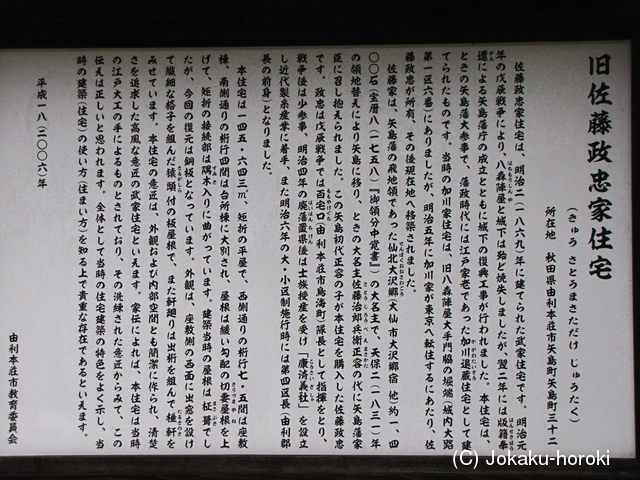 旧佐藤政忠家住宅
(きゅう さとうまさただけ じゅうたく)
所在地 秋田県由利本荘市矢島町矢島町三十二
佐藤政忠家住宅は、明治二(一八六九)年に建てられた武家住宅です。明治元
年の戊辰戦争により、八森陣屋と城下は殆ど焼失しましたが、翌二年には版籍奉
還による矢島藩庁の成立とともに城下の復興工事が行われました。本住宅は、
ときの矢島藩大参事で、藩政時代には江戸家老であった加川退蔵住宅として建
てられたものです。当時の加川家住宅は、旧八森陣屋大手門脇の堀端(城内大路
第一区六番)にありましたが、明治五年に加川家が東京へ転住するにあたり、佐
藤政忠が所有、その後現在地へ移築されました。
佐藤家は、矢島藩の飛地領であった仙北大沢郷(大仙市大沢郷宿 他)約一、四
〇〇石(宝暦八(一七五八)『御領分中覚書』)の大名主で、天保二(一八三一)年
の領地替えにより矢島に移り、ときの大名主佐藤治郎兵衛正容の代に矢島藩家
臣に召し抱えられました。この矢島初代正容の子が本住宅を購入した佐藤政忠
です。政忠は戊辰戦争では百宅口(由利本荘市鳥海町)隊長として指揮をとり、
戦争後は少参事、明治四年の廃藩置県後は士族授産を受け「康済義社」を設立
し近代製糸産業に着手、また明治六年の大・小区制施行時には第四区長(由利郡
長の前身)となりました。
本住宅は一四五・六四三㎡、矩折の平屋で、西側通りの桁行七・五間は座敷
棟、南側通りの桁行四間は台所棟に大別され、屋根は緩い勾配の切妻屋根を上
げて、矩折の接続部は隅木入りに曲がっています。建築当時の屋根は柾葺でし
たが、今回の復元は銅板となっています。外観は、座敷側の西面に出窓を設け
て繊細な格子を組んだ猿頭付の板屋根で、また軒廻りは出桁を組んで棰軒を
みせています。本住宅の意匠は、外観および内部空間とも簡潔に作られ、清楚
さを追求した高風な意匠の武家住宅といえます。家伝によれば、本住宅は当時
の江戸大工の手によるものとされており、その洗練された意匠からみて、この
伝えは正しいと思われます。全体として当時の住宅建築の特色をよく示し、当
時の建築(住宅)の使い方(住まい方)を知る上で貴重な存在であるといえます。
平成一八(二〇〇六)年
由利本荘市教育委員会
(C) Jokaku-horoki